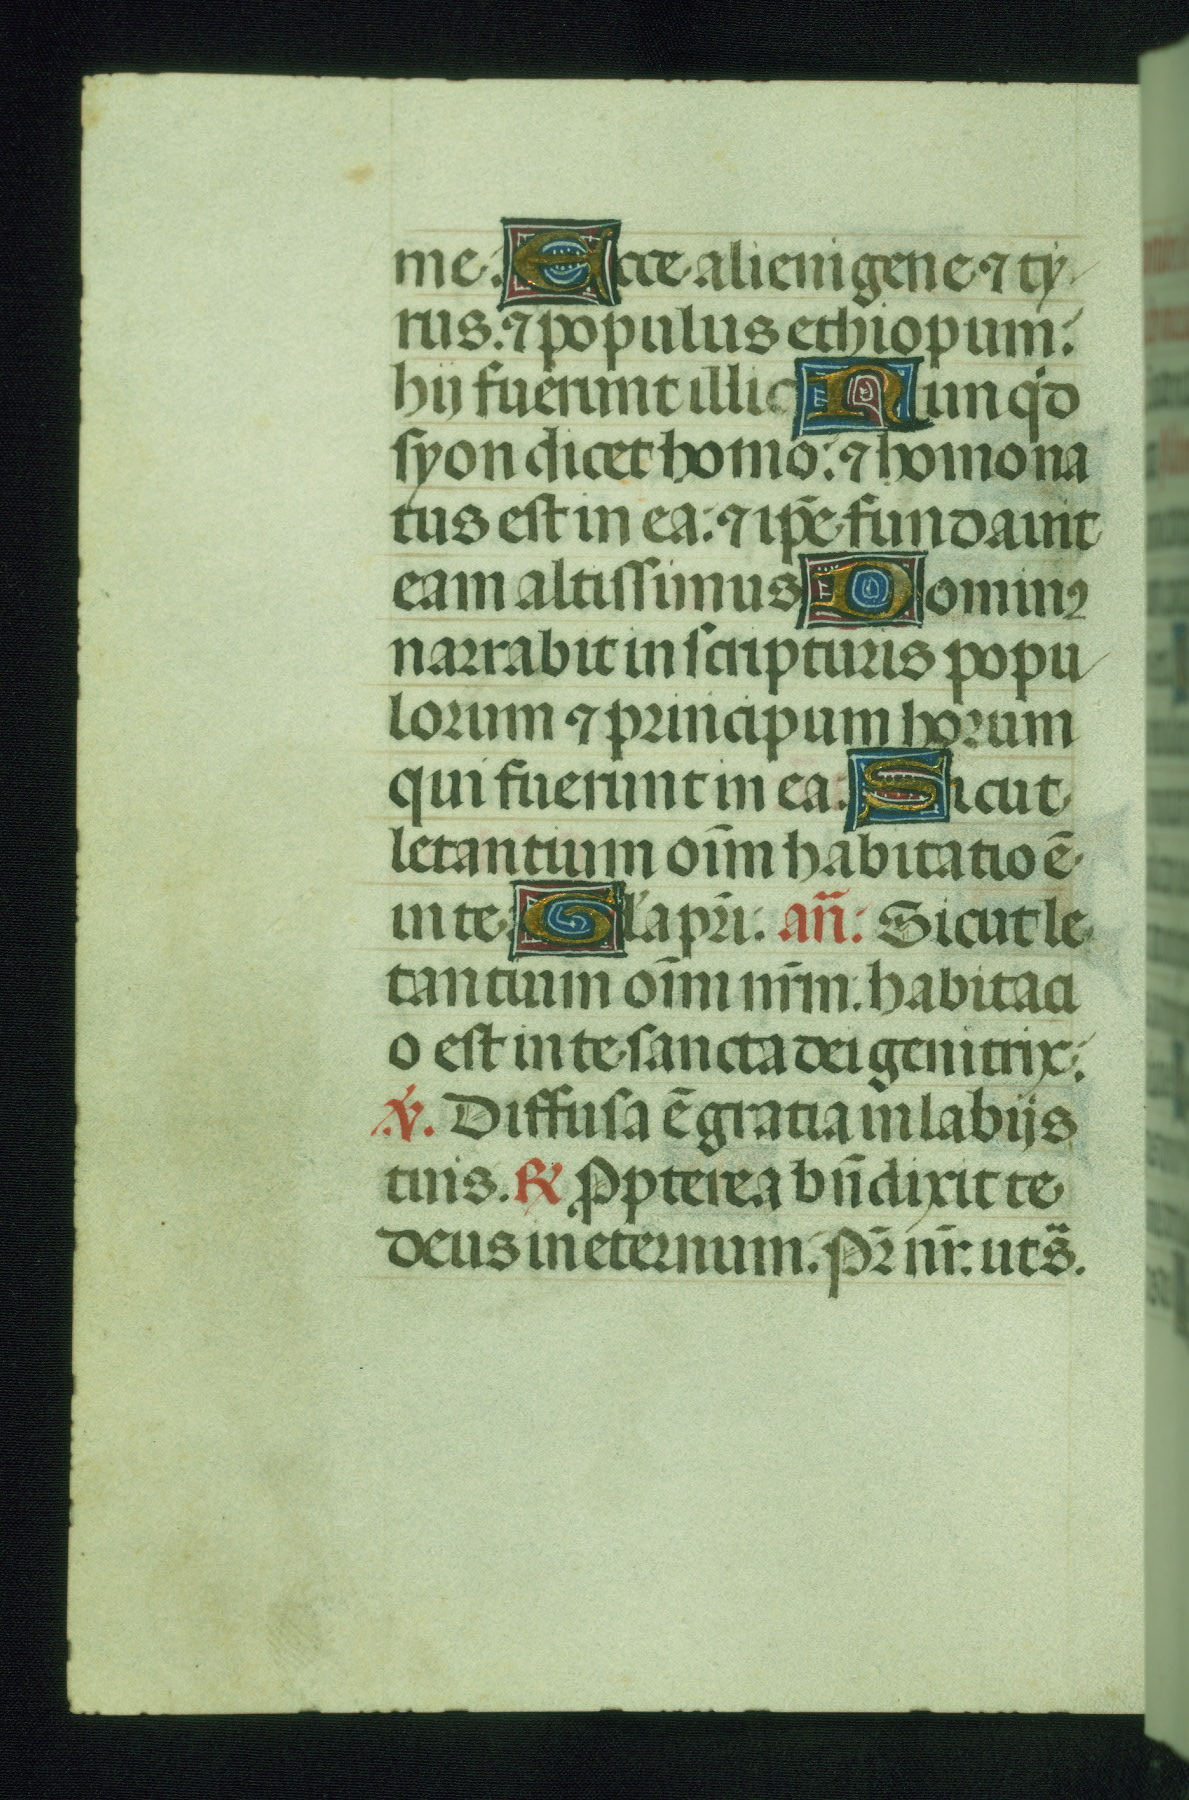 me. Ecce alienigene ⁊ ty
rus. ⁊ populus ethiopum:
hii fuerunt illic Nunqͥd
syon dicet homo: ⁊ homo na
tus est in ea: ⁊ ip̄e fundauit
eam altissimus Dominꝰ
narrabit in scripturis popu
lorum ⁊ principum horum
qui fuerunt in ea. Sicut
letantium oīm habitatio ē
in te Gl'a pr̄i. an̄: Sicut le
tantium oīm nr̄m. habitaci
o est in te sancta dei genitrix:
℣. Diffusa ē gratia in labijs
tuis. ℞ Ꝓpterea bn̄dixit te
deus in eternum. Pr̄ nr̄. ut s̄.